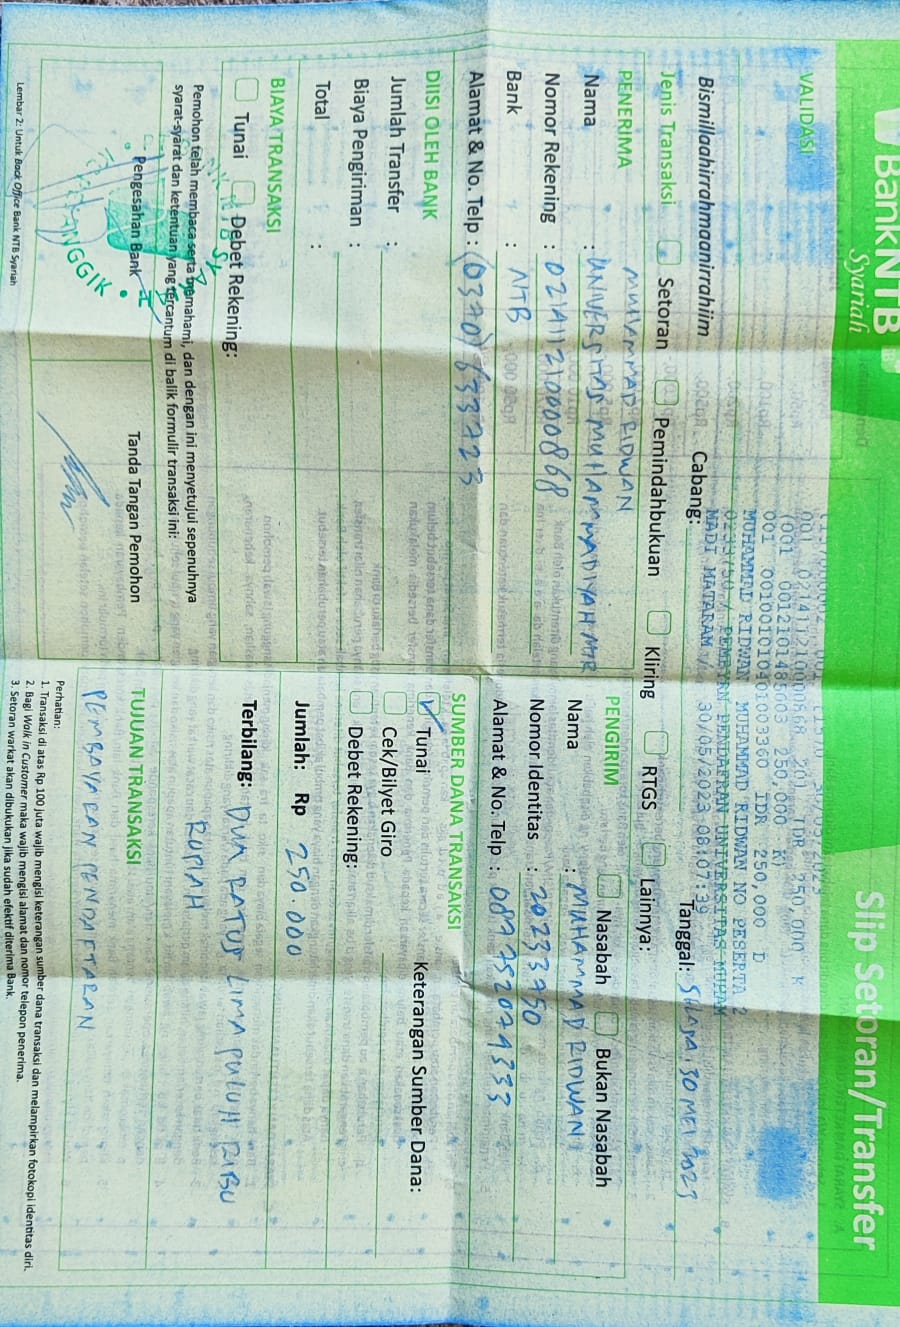 BankNTB
Syariah
Slip Setoran/Transfer
VALIDASI
001 0214112100000868 201 IDR 250,000 K
001 0012101485003 250,000 K
001 0010010104010003360 IDR 250,000 D
MUHAMMAD RIDWAN MUHAMMAD RIDWAN NO PESERTA 2
0233750 / PEMBYRN PENDAFRAN UNIVERSITAS MUHAM
MADI MATARAM / 30/05/2023 08:07:39
Bismillaahirrahmaanirrahiim
Cabang:
Tanggal: SELASA, 30 MEI 2023
Jenis Transaksi
Setoran
Pemindahbukuan
Kliring
RTGS
Lainnya:
PENERIMA
MUHAMMAD RIDWAN
Nama : UNIVERSITAS MUHAMMADIYAH MTR
Nomor Rekening : 0214112100000868
Bank : NTB
Alamat & No. Telp : (0370) 633723
PENGIRIM
Nasabah
Bukan Nasabah
Nama : MUHAMMAD RIDWAN
Nomor Identitas : 20233750
Alamat & No. Telp : 087752074333
DIISI OLEH BANK
Jumlah Transfer :
Biaya Pengiriman :
Total :
SUMBER DANA TRANSAKSI
Tunai
Keterangan Sumber Dana:
Cek/Bilyet Giro
Debet Rekening:
BIAYA TRANSAKSI
Tunai
Debet Rekening:
Jumlah: Rp 250.000
Terbilang: DUA RATUS LIMA PULUH RIBU
RUPIAH
Pemohon telah membaca serta memahami, dan dengan ini menyetujui sepenuhnya
syarat-syarat dan ketentuan yang tercantum di balik formulir transaksi ini:
Pengesahan Bank
Tanda Tangan Pemohon
TUJUAN TRANSAKSI
PEMBAYARAN PENDAFTARAN
Perhatian:
1. Transaksi di atas Rp 100 juta wajib mengisi keterangan sumber dana transaksi dan melampirkan fotokopi identitas diri.
2. Bagi Walk in Customer maka wajib mengisi alamat dan nomor telepon penerima.
3. Setoran warkat akan dibukukan jika sudah efektif diterima Bank.
Lembar 2: Untuk Back Office Bank NTB Syariah